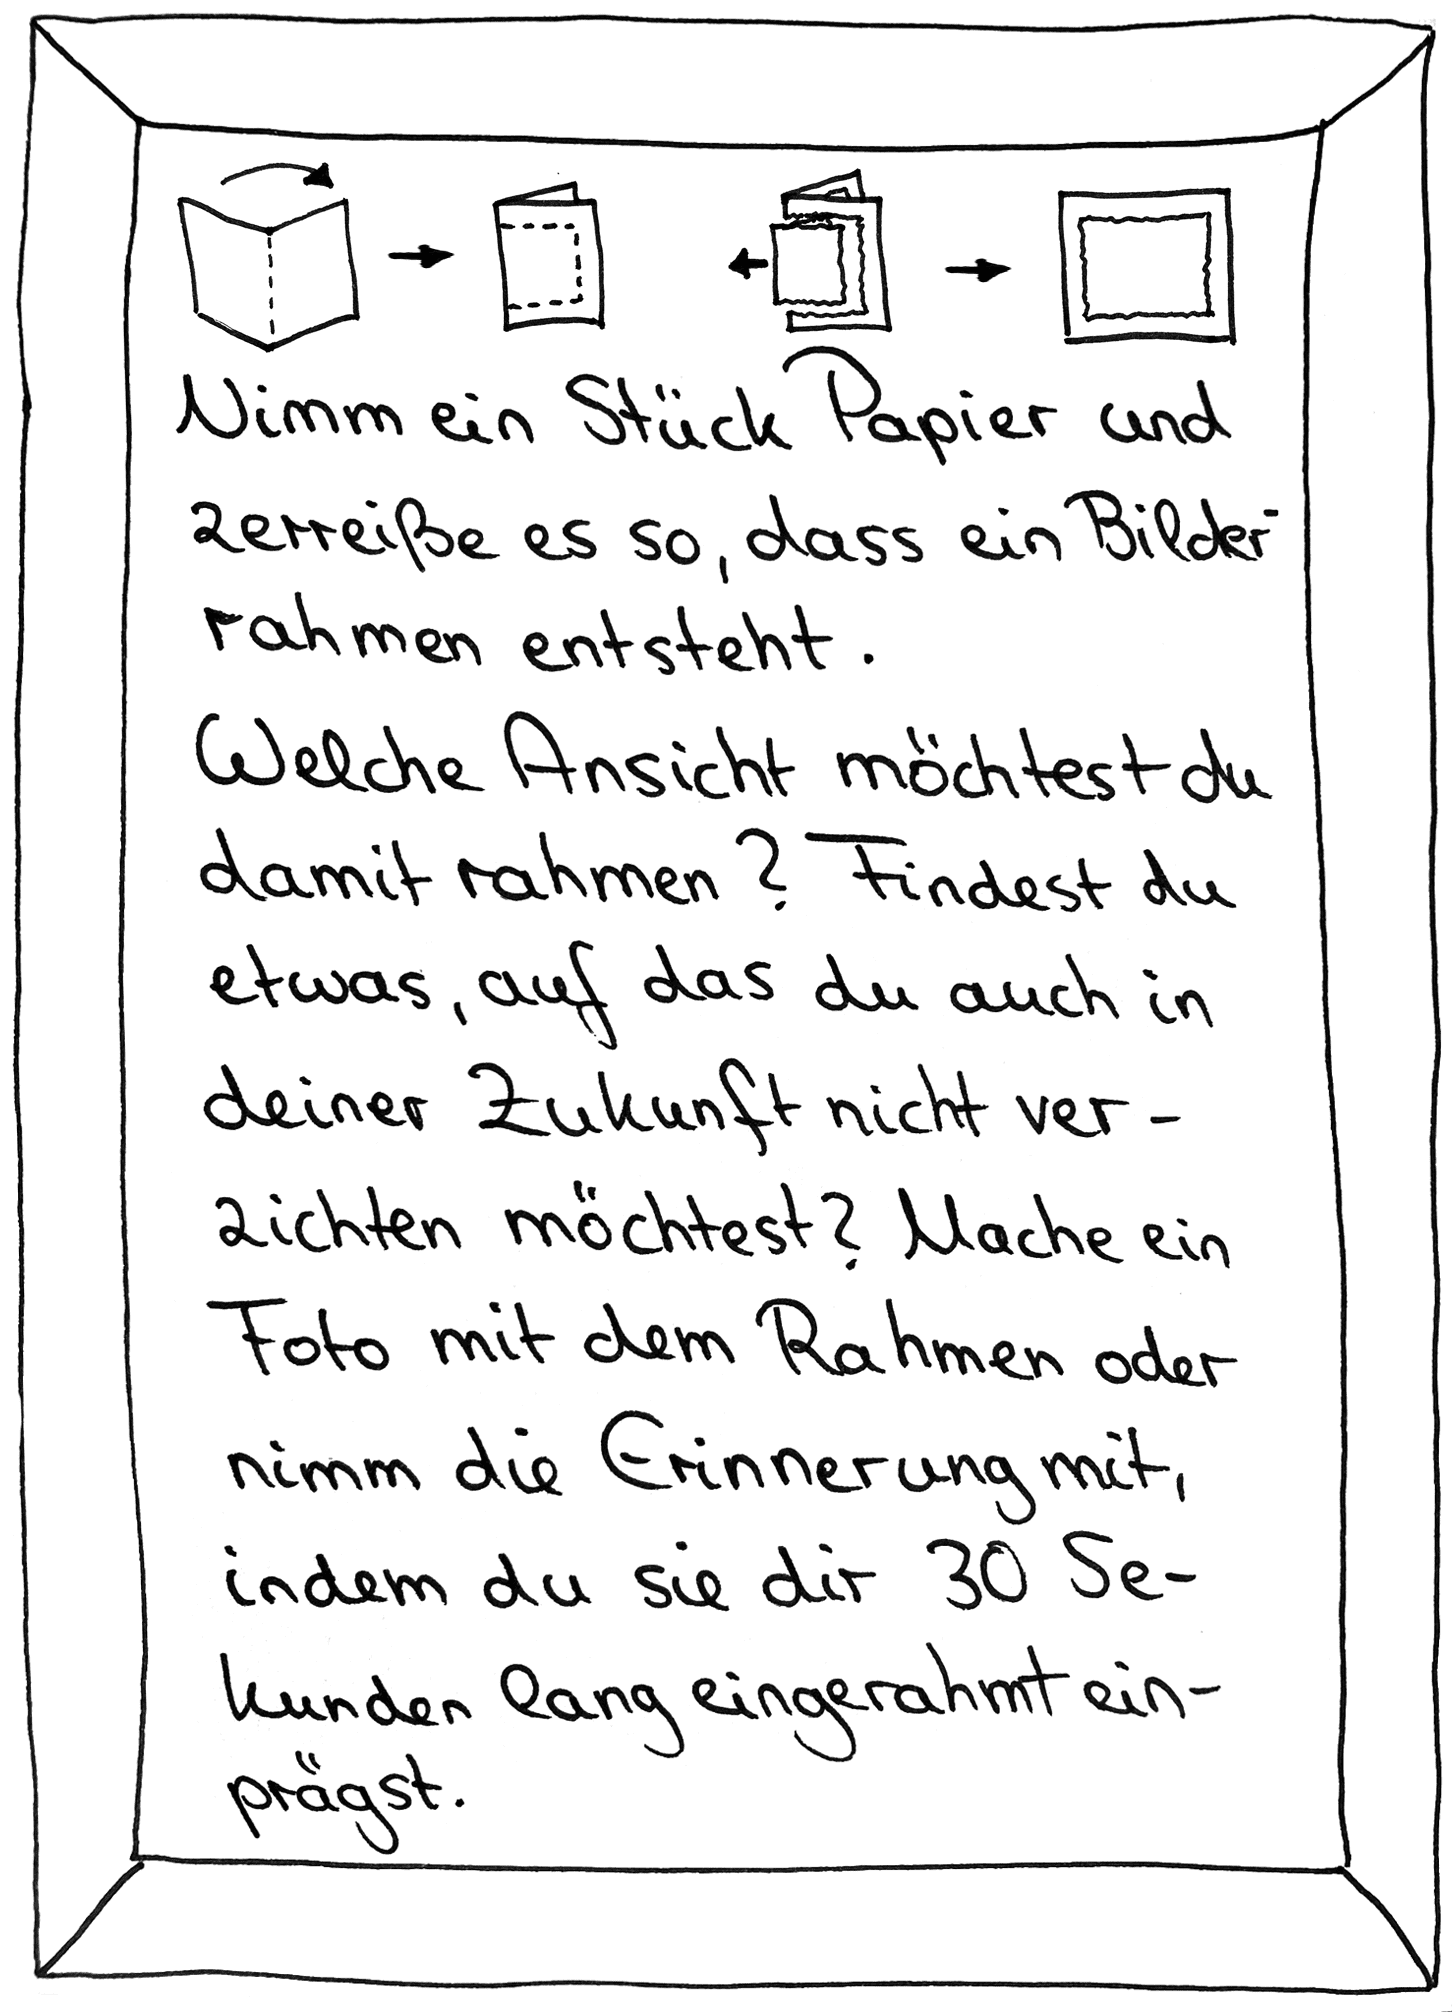 Nimm ein Stück Papier und
zerreiße es so, dass ein Bilder-
rahmen entsteht.
Welche Ansicht möchtest du
damit rahmen? Findest du
etwas, auf das du auch in
deiner Zukunft nicht ver-
zichten möchtest? Mache ein
Foto mit dem Rahmen oder
nimm die Erinnerung mit,
indem du sie dir 30 Se-
kunden lang eingerahmt ein-
prägst.